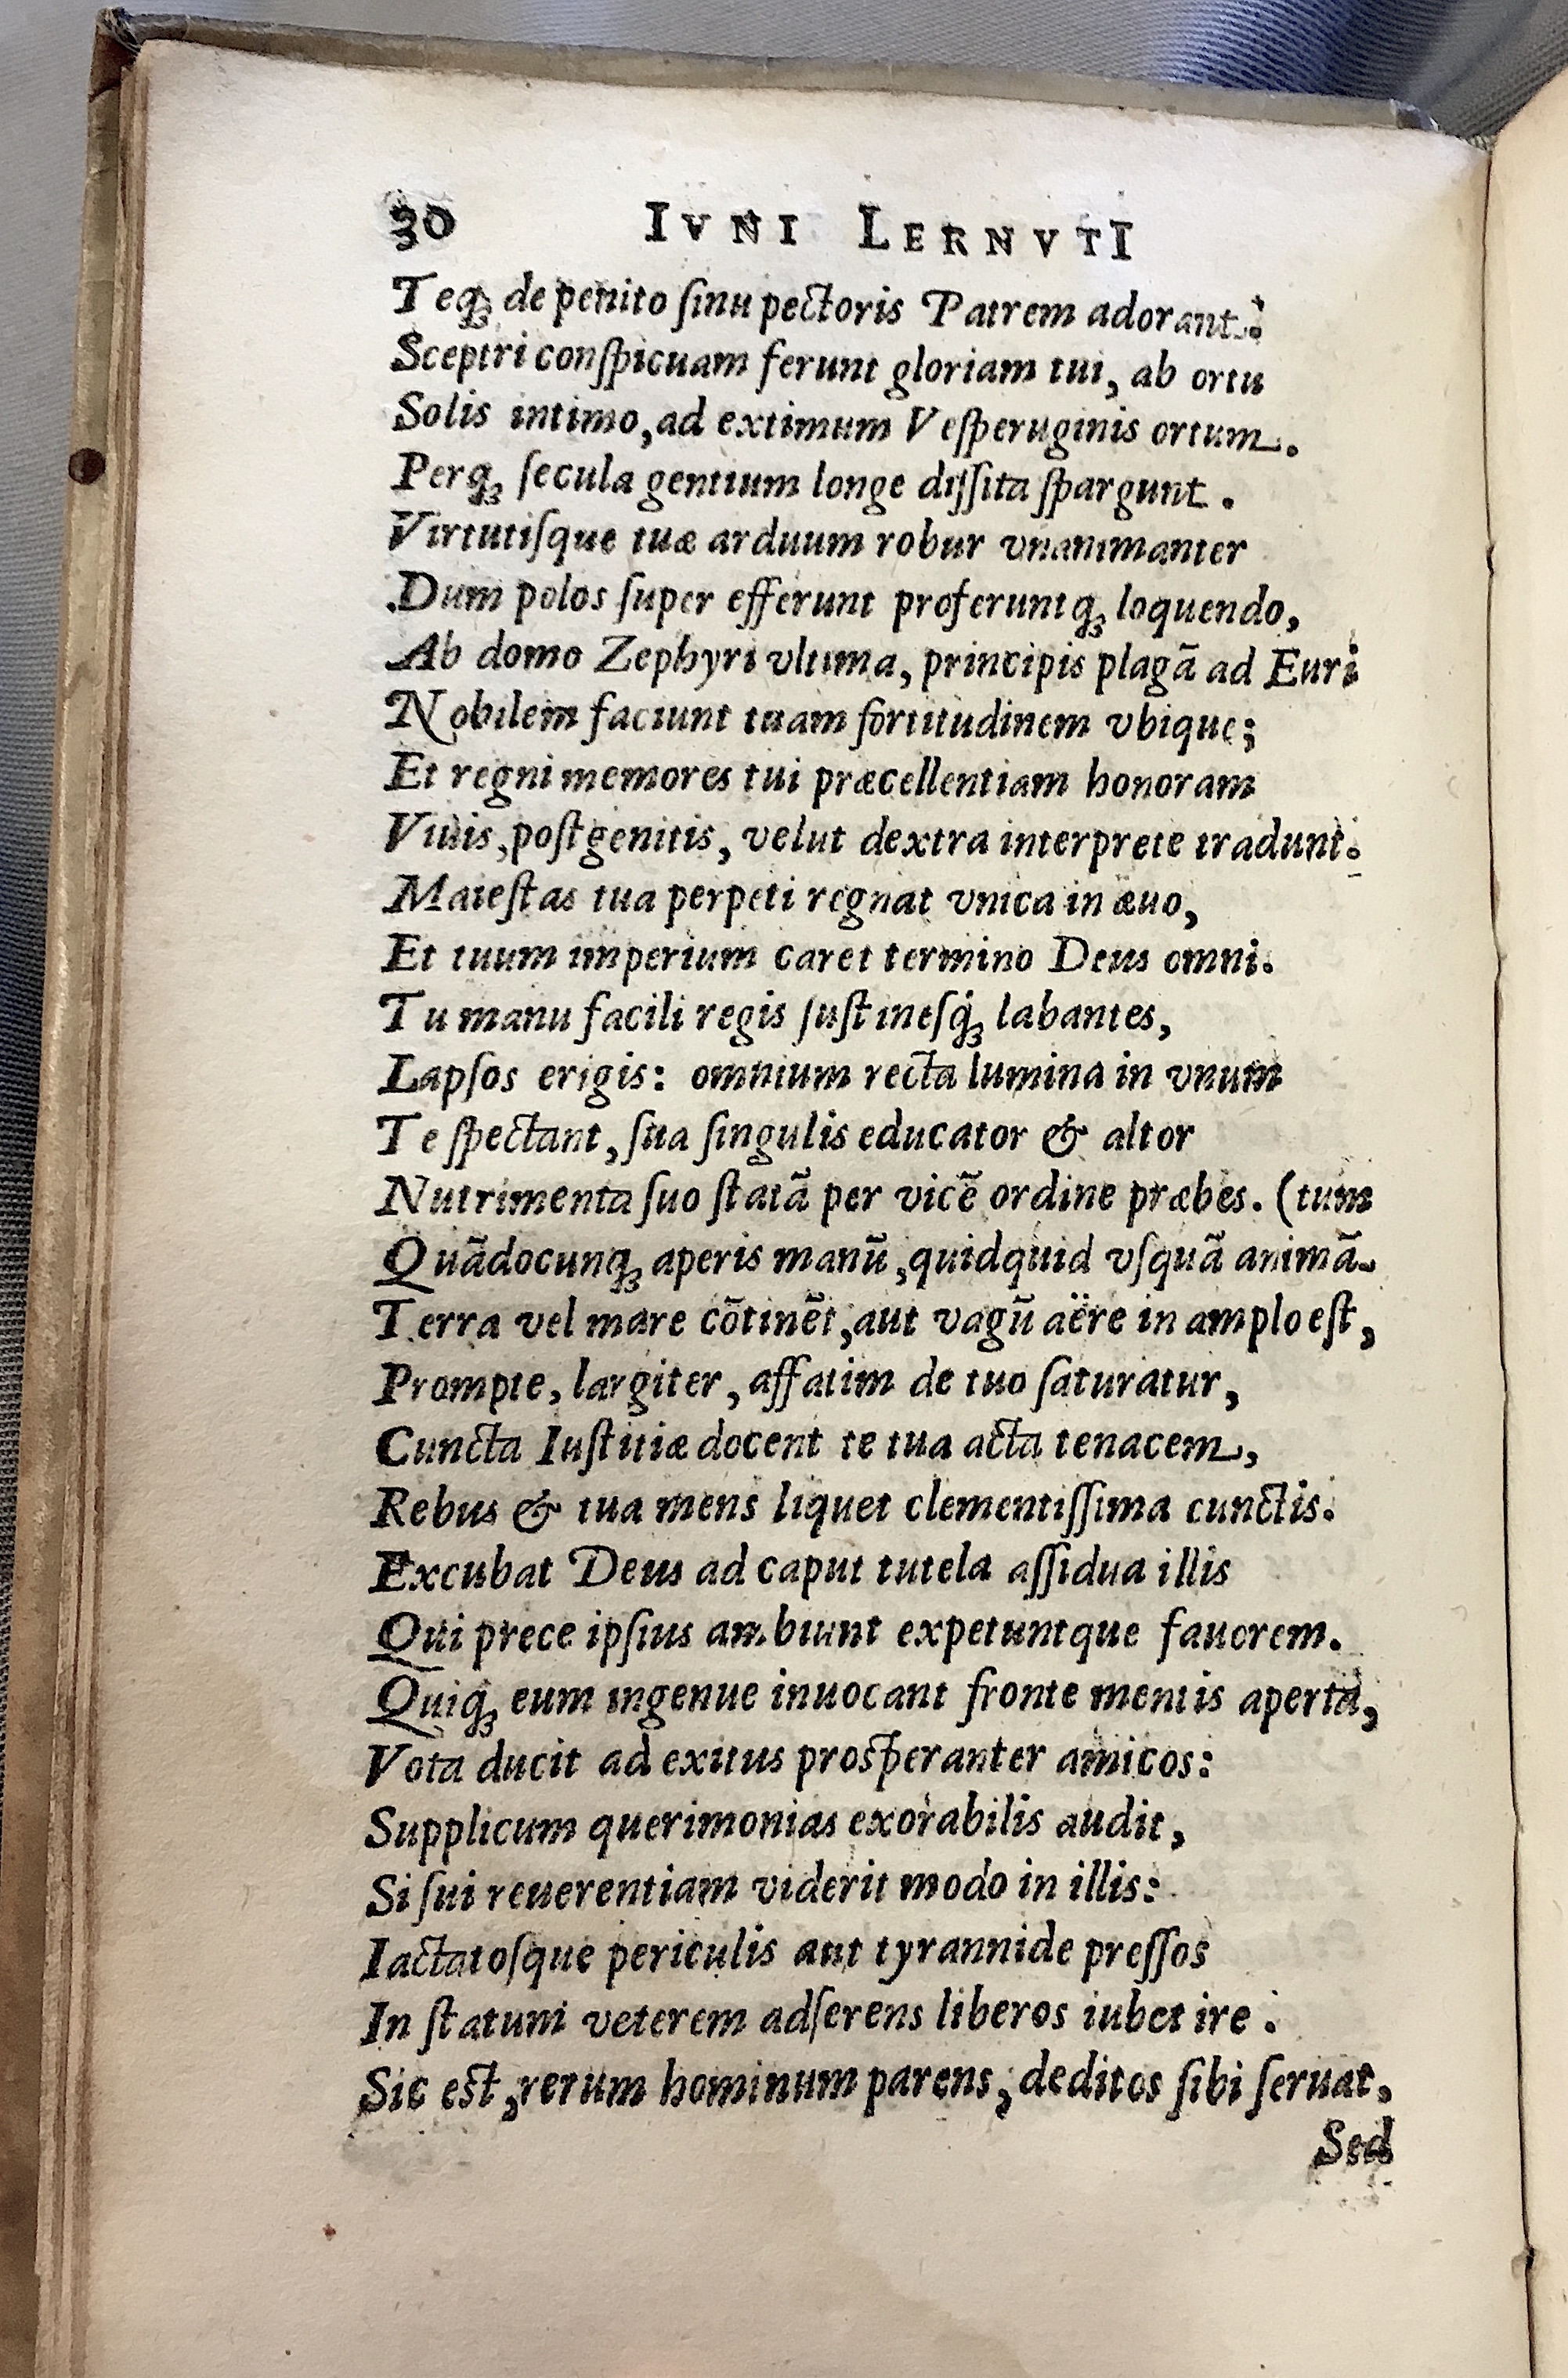 30 IVNI LERNVTI
Teq́ꝫ de penito ſinu pectoris Patrem adorant.
Sceptri conſpicuam ferunt gloriam tui, ab ortu
Solis intimo, ad extimum Veſperuginis ortum.
Perq́ꝫ ſecula gentium longe diſſita ſpargunt.
Virtutiſque tuæ arduum robur vnanimanter
Dum polos ſuper efferunt proferuntq́ꝫ loquendo,
Ab domo Zephyri vltima, principis plagā ad Euri
Nobilem faciunt tuam fortitudinem vbique;
Et regni memores tui præcellentiam honoram
Viuis, poſtgenitis, velut dextra interprete tradunt.
Maieſtas tua perpeti regnat vnica in æuo,
Et tuum imperium caret termino Deus omni.
Tu manu facili regis ſuſtineſq́ꝫ labantes,
Lapſos erigis: omnium recta lumina in vnum
Te ſpectant, ſua ſingulis educator & altor
Nutrimenta ſuo ſtatā per vicē ordine præbes. (tum
Quādocunq́ꝫ aperis manū, quidquid vſquā animā-
Terra vel mare cōtinēt, aut vagū aëre in amplo eſt,
Prompte, largiter, affatim de tuo ſaturatur,
Cuncta Iuſtitiæ docent te tua acta tenacem,
Rebus & tua mens liquet clementiſſima cunctis.
Excubat Deus ad caput tutela aſſidua illis
Qui prece ipſius ambiunt expetuntque fauorem.
Quiq́ꝫ eum ingenue inuocant fronte mentis aperta,
Vota ducit ad exitus proſperanter amicos:
Supplicum querimonias exorabilis audit,
Si ſui reuerentiam viderit modo in illis:
Iactatoſque periculis aut tyrannide preſſos
In ſtatum veterem adſerens liberos iubet ire.
Sic eſt, rerum hominum parens, deditos ſibi ſeruat,
Sed